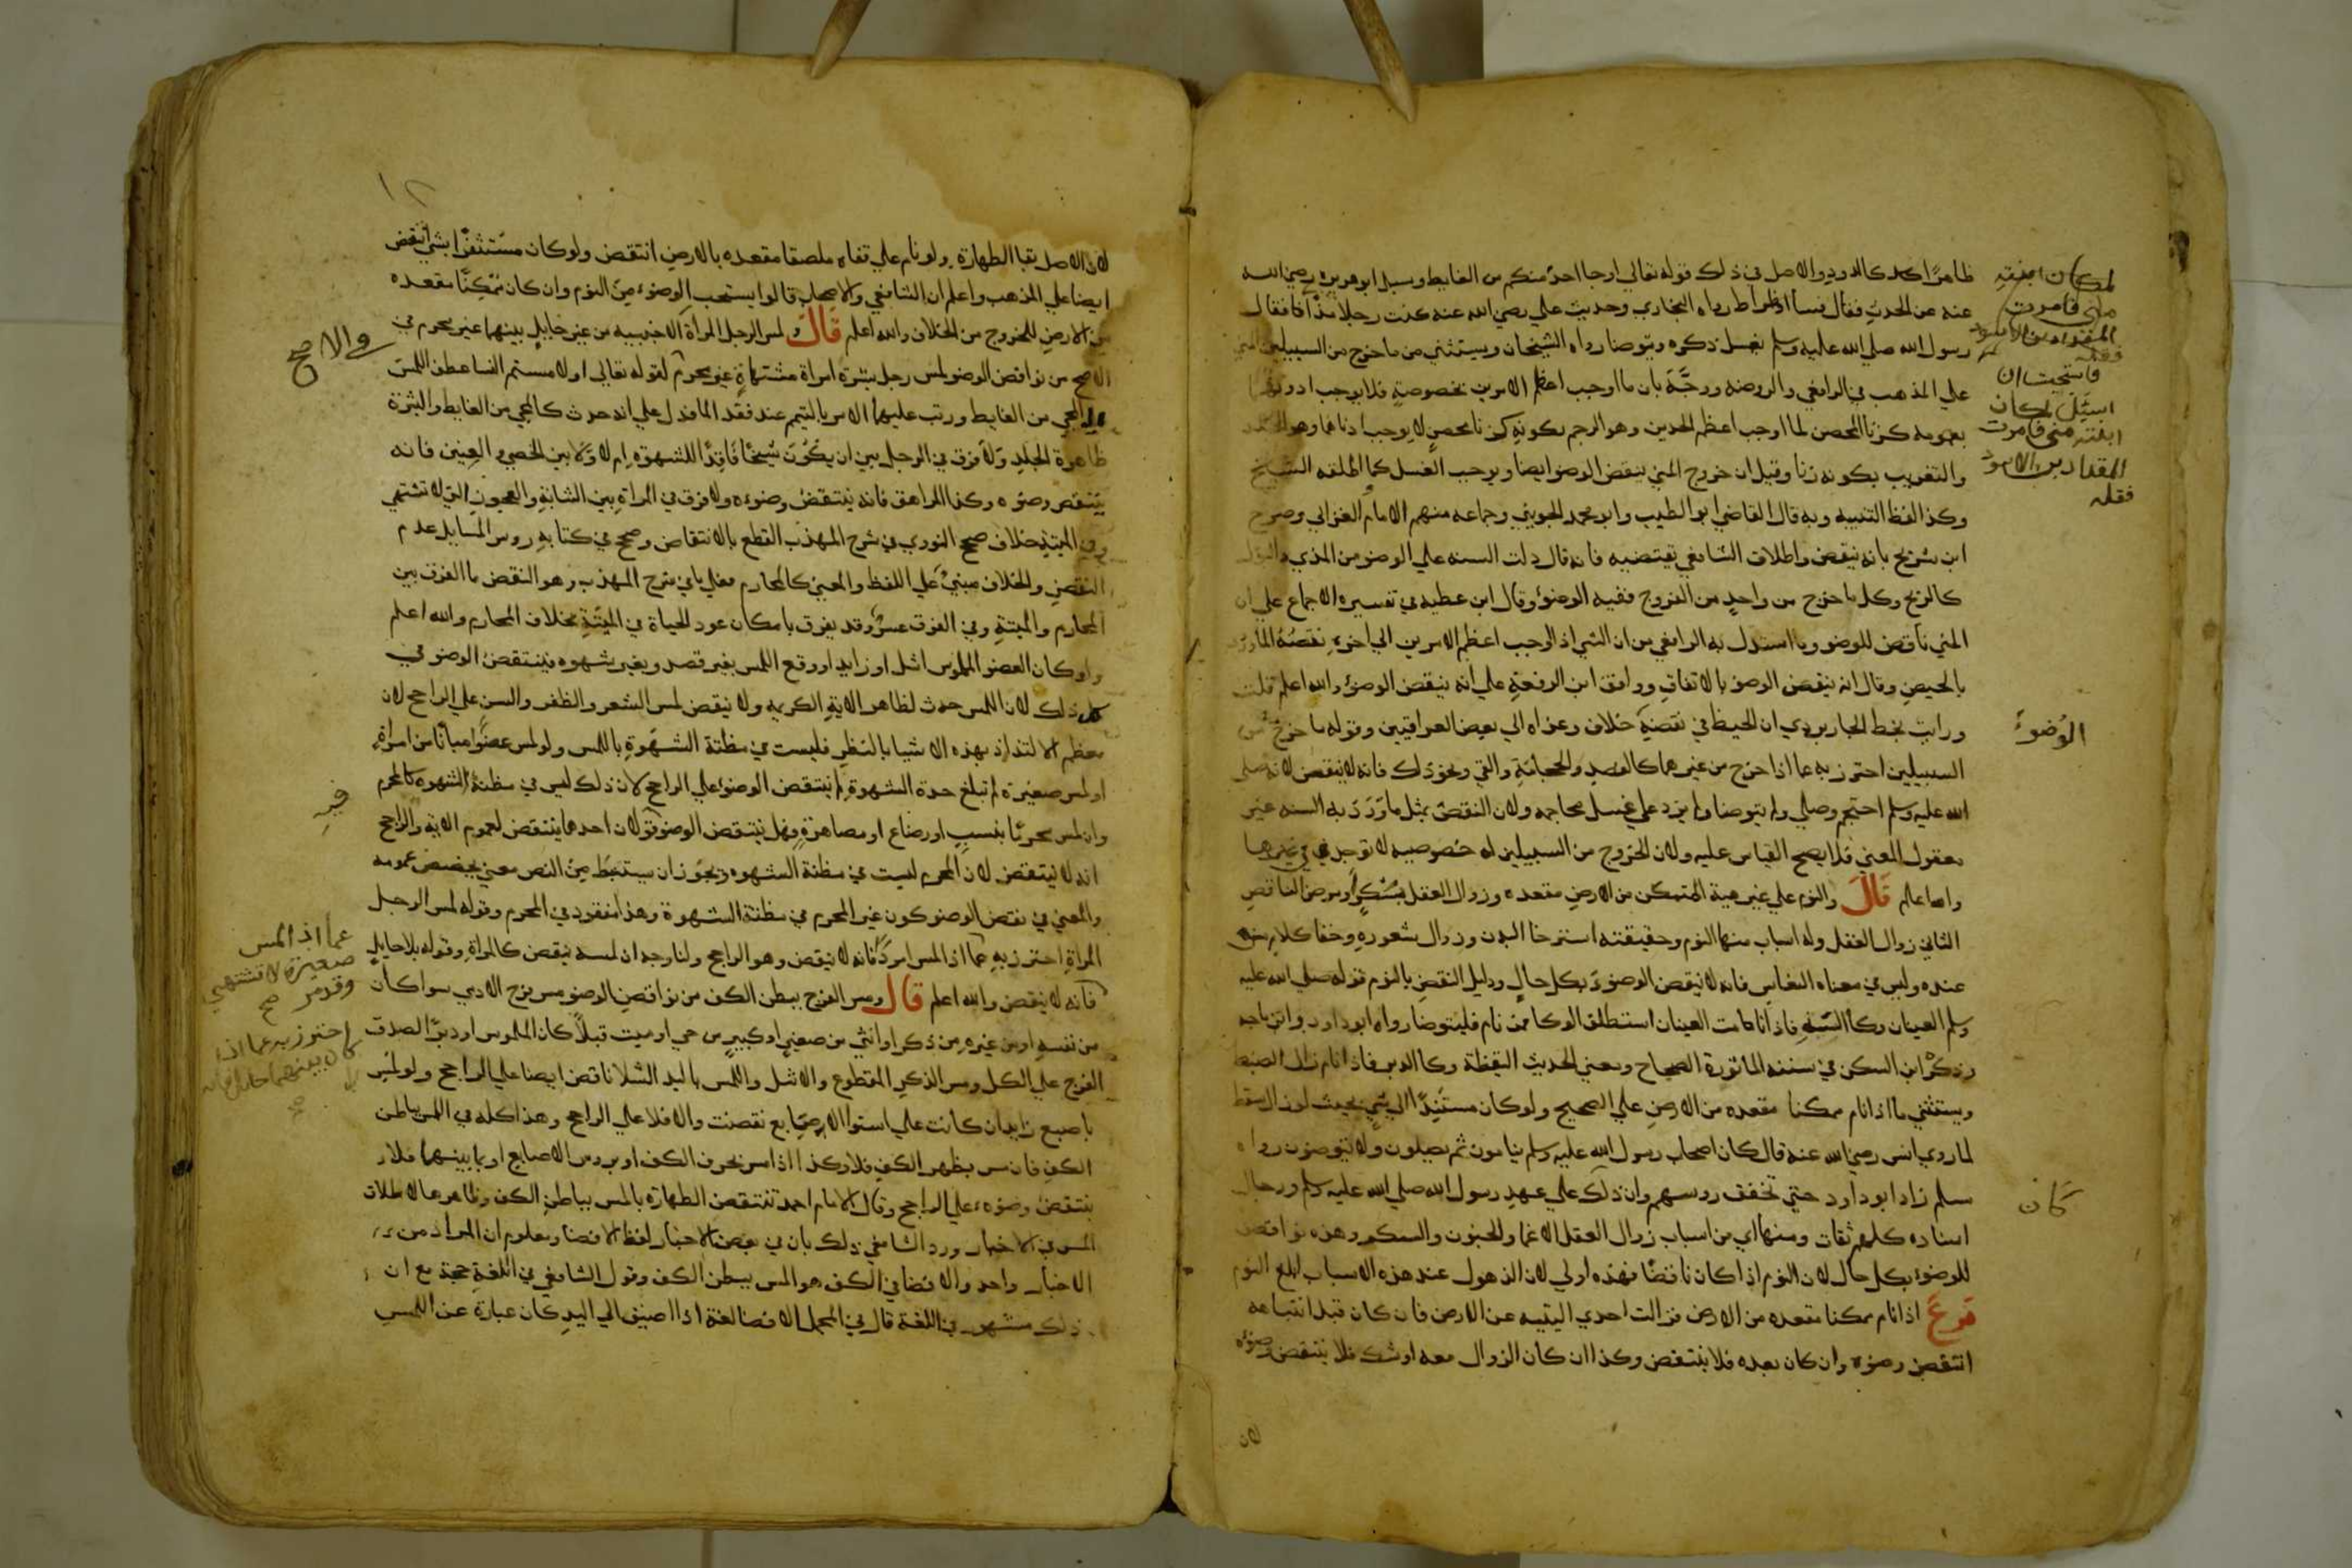 طاهرًا كان كالدود والاصل في ذلك قوله تعالي او جا احد منكم من الغايط وسيل ابو هريره رضي الله
عنه عن الحدث فقال فسا او ضراط رواه البخاري وحديث علي رضي الله عنه كنت رجلا مذا فقال
رسول الله صلي الله عليه وسلم يغسل ذكره ويتوضا رواه الشيخان ويستثني من ما خرج من السبيلين المني
علي المذهب في الرافعي والروضه ووجَّهَهُ بان ما اوجب اعظم الامرين بخصوصه فلا يوجب ادونهما
بعمومه كزنا المحصن لما اوجب اعظم الحدين وهو الرجم بكونه زنا محصن لا يوجب ادناهما وهو الجلد
والتغريب بكونه زنا وقيل ان خروج المني ينقض الوضو ايضا ويوجب الغسل كما اطلقه الشيخ
وكذا لفظ التنبيه وبه قال القاضي ابو الطيب وابو محمد الجويني وجماعه منهم الامام الغزالي وصرح
ابن سريج بانه ينقض واطلاق الشافعي يقتضيه فانه قال دلت السنه علي الوضو من المذي والبول
كالريح وكل ما خرج من واحد من الفروج ففيه الوضوء وقال ابن عطيه في تفسيره الاجماع علي ان
المني ناقض للوضو وما استدل به الرافعي من ان الشي اذا اوجب اعظم الامرين الي اخره نقضه الماوردي
بالحيض وقال انه ينقض الوضو بالاتفاق ووافق ابن الرفعة علي انه ينقض الوضو والله اعلم قلت
ورايت بخط الجاربردي ان الحيض في نقضه خلاف وعزاه الي بعض العراقيين وقوله ما خرج من
السبيلين احترز به عما اذا خرج من غيرهما كالفصد والحجامة والقي ونحو ذلك فانه لا ينقض لانه صلي
الله عليه وسلم احتجم وصلي ولم يتوضا ولم يزد علي غسل محاجمه ولان النقض بمثل ما وَرَدَ به السنه غير
معقول المعني فلا يصح القياس عليه ولان الخروج من السبيلين له خصوصيه لا توجد في غيرهما
والله اعلم قَالَ والنوم علي غير هيئة المتمكن من الارض مقعده وزوال العقل بسكر او مرض الناقض
الثاني زوال العقل وله اسباب منها النوم وحقيقته استرخا البدن وزوال شعوره وخفا كلام من
عنده وليس في معناه النعاس فانه لا ينقض الوضو بكل حال ودليل النقض بالنوم قوله صلي الله عليه
وسلم العينان وكا السَّهِ فاذا نامت العينان استطلق الوكا فمن نام فليتوضا رواه ابو داود وابن ماجه
وذكره ابن السكن في سننه الماثورة الصحاح ومعني الحديث اليقظة وكا الدبر فاذا نام زال الضبط
ويستثني ما اذا نام ممكنا مقعده من الارض علي الصحيح ولو كان مستندًا الي شي بحيث لو زال لسقط
لما روي انس رضي الله عنه قال كان اصحاب رسول الله عليه وسلم ينامون ثم يصلون ولا يتوضون رواه
مسلم زاد ابو داود حتي تخفق روسهم وان ذلك علي عهد رسول الله صلي الله عليه وسلم ورجال
اسناده كلهم ثقات ومنها اي من اسباب زوال العقل الاغما والجنون والسكر وهذه نواقض
للوضوء بكل حال لان النوم اذا كان ناقضًا فهذه اولي لان الذهول عند هذه الاسباب ابلغ النوم
فَرعٌ اذا نام ممكنا مقعده من الارض فزالت احدي اليتيه عن الارض فان كان قبل انتباهه
انتقض وضوه وان كان بعده فلا ينتقض وكذا ان كان الزوال معه او شك فلا ينتقض وضوه
لان
لمكان ابنته
مني فامرت
المقداد بن الاسود
فاستحيت ان
اسئل لمكان
ابنته مني فامرت
المقداد بن الاسود
فقله
الوُضوءُ
كَانَ
١٢
لان الاصل بقا الطهارة ولو نام علي قفاه ملصقا مقعده بالارض انتقض ولو كان مستثفرًا بشي انتقض
ايضا علي المذهب واعلم ان الشافعي والاصحاب قالوا يستحب الوضوء من النوم وان كان متمكِنًا مقعده
من الارض للخروج من الخلاف والله اعلم قَالَ ولمس الرجل المراة الاجنبيه من غير حايل بينهما غير محرم في
الاصح من نواقض الوضو لمس رجل بشرة امراة مشتهاة غير محرم لقوله تعالي او لامستم النسا عطف اللمس
علي المجي من الغايط ورتب عليهما الامر بالتيمم عند فقد الما فدل علي انه حدث كالمجي من الغايط والبشرة
ظاهرة الجلد ولا فرق في الرجل بين ان يكون شيخًا فاقدًا للشهوة ام لا ولا بين الخصي والعنين فانه
ينتقض وضوه وكذا المراهق فانه ينتقض وضوءه ولا فرق في المراة بين الشابة والعجوز التي لا تشتهي
وفي الميتة خلاف صحح النووي في شرح المهذب القطع بالانتقاض وصحح في كتابه روس المسايل عدم
النقض والخلاف مبني علي اللفظ والمعني كالمحارم فعلي ما في شرح المهذب وهو النقض ما الفرق بين
المحارم والميتة وفي الفرق عسر وقد يفرق بامكان عود الحياة في الميتة بخلاف المحارم والله اعلم
ولو كان العضو الملموس اشل او زايد او وقع اللمس بغير قصد وبغير شهوه فينتقض الوضو في
كل ذلك لان اللمس حدث لظاهر الاية الكريمه ولا ينقض لمس الشعر والظفر والسن علي الراجح لان
معظم الالتذاذ بهذه الاشيا بالنظر فليست في مظنة الشهوة باللمس ولو لمس عضوا مبانا من امراة
او لمس صغيرة لم تبلغ حدة الشهوة لم ينتقض الوضو علي الراجح لان ذلك ليس في مظنة الشهوه كالمحرم
وان لمس محرمًا بنسب او رضاع او مصاهرة فهل ينتقض الوضو قولان احدهما ينتقض لعموم الايه والراجح
انه لا ينتقض لان المحرم ليست في مظنة الشهوه ويجوز ان يستنبط من النص معني يخصص عمومه
والمعني في نقض الوضو كون غير المحرم في مظنة الشهوة وهذا مفقود في المحرم وقوله لمس الرجل
المراة احترز به عما اذا لمس امردًا فانه لا ينقض وهو الراجح ولنا وجه ان لمسه ينقض كالمراة وقوله بلا حايل
فانه لا ينقض والله اعلم قال ومس الفرج ببطن الكف من نواقض الوضو مس فرج الادمي سوا كان
من نفسه او من غيره من ذكر او انثي من صغير او كبير من حي او ميت قبلًا كان الملموس او دبرًا لصدق
الفرج علي الكل ومس الذكر المقطوع والاشل واللمس باليد الشلا ناقض ايضا علي الراجح ولو لمس
باصبع زايد ان كانت علي استوا الاصابع نقضت والا فلا علي الراجح وهذا كله في اللمس بباطن
الكف فان مس بظهر الكف فلا وكذا اذا مس بحرف الكف او بروس الاصابع او بما بينهما فلا
ينتقض وضوءه علي الراجح وقال الامام احمد تنتقض الطهارة بالمس بباطن الكف وظاهرها لاطلاق
المس في الاخبار ورد الشافعي ذلك بان في بعض الاخبار لفظ الافضا ومعلوم ان المراد من
الاخبار واحد والافضا في الكف هو المس ببطن الكف وقول الشافعي في اللغة حجة مع ان
ذلك مشهور في اللغة قال في المجمل الافضا لغة اذا اضيف الي اليد كان عبارة عن اللمس
والاصح
فيه
عما اذا لمس
صغيرة لا تشتهي
وقد مر صح
احترز به عما اذا
كان بينهما حايل فانه